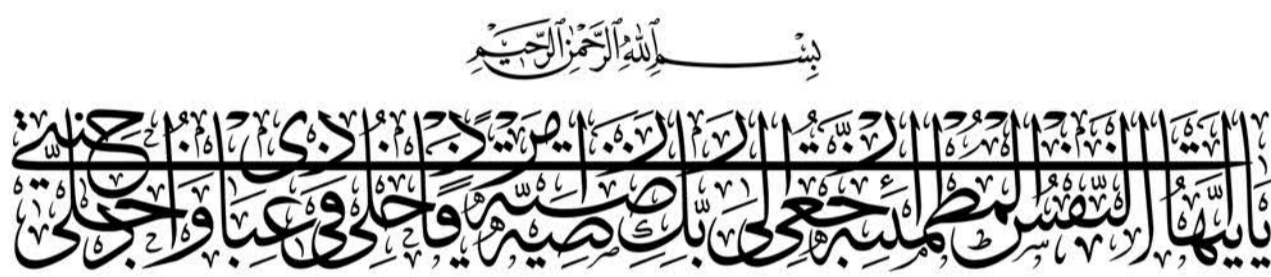 بِسْمِ ٱللَّهِ ٱلرَّحْمَٰنِ ٱلرَّحِيمِ
يَا أَيَّتُهَا النَّفْسُ الْمُطْمَئِنَّةُ ارْجِعِي إِلَى رَبِّكِ رَاضِيَةً مَرْضِيَّةً فَادْخُلِي فِي عِبَادِي وَادْخُلِي جَنَّتِي